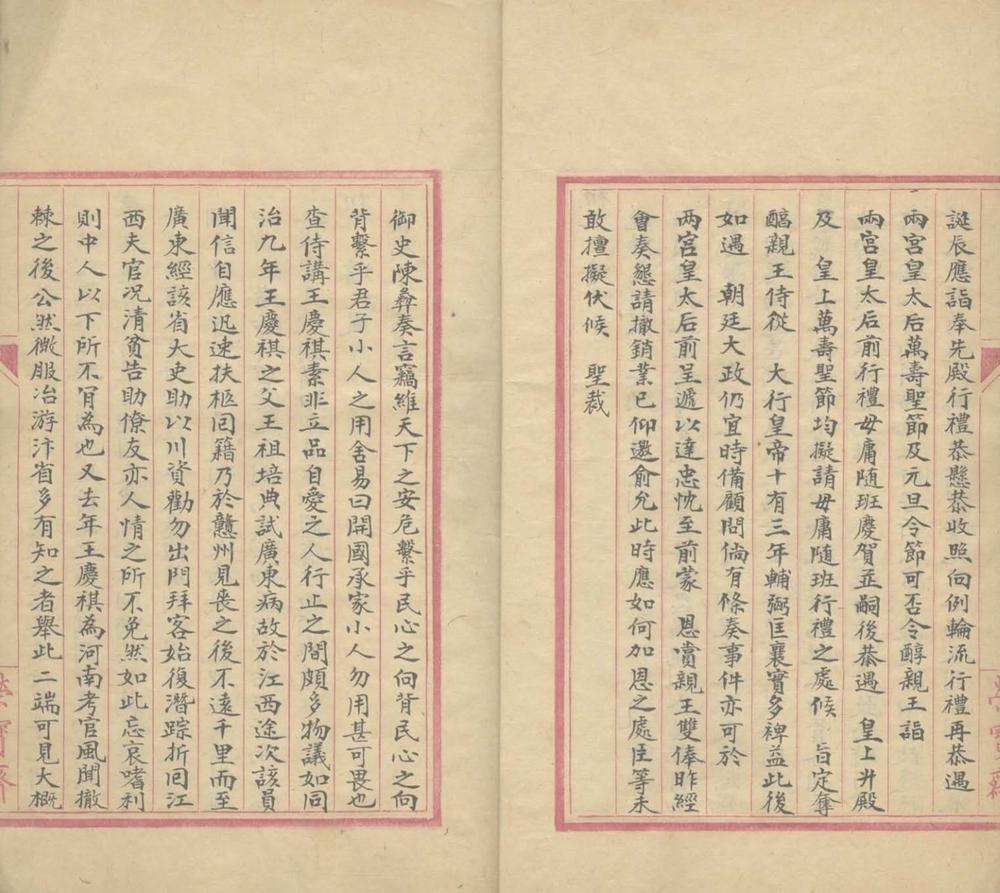 誕辰應詣奉先殿行禮恭懸恭收照向例輪流行禮再恭遇
兩宮皇太后萬壽聖節及元旦令節可否令醇親王詣
兩宮皇太后前行禮毋庸隨班慶賀並嗣後恭遇　皇上升殿
及　皇上萬壽聖節均擬請毋庸隨班行禮之處候　旨定奪
醕親王侍從　大行皇帝十有三年輔弼匡襄實多裨益此後
如遇　朝廷大政仍宜時備顧問倘有條奏事件亦可於
兩宮皇太后前呈遞以達忠忱至前蒙　恩賞親王雙俸昨經
會奏懇請撤銷業已仰邀俞允此時應如何加恩之處臣等未
敢擅擬伏候　聖裁
御史陳彝奏言竊維天下之安危繫乎民心之向背民心之向
背繫乎君子小人之用舍易曰開國承家小人勿用甚可畏也
查侍講王慶祺素非立品自愛之人行止之間頗多物議如同
治九年王慶祺之父王祖培典試廣東病故於江西途次該員
聞信自應迅速扶柩回籍乃於贛州見喪之後不遠千里而至
廣東經該省大吏助以川資勸勿出門拜客始復潛踪折回江
西夫官况清貧告助僚友亦人情之所不免然如此忘哀嗜利
則中人以下所不肯為也又去年王慶祺為河南考官風聞撤
棘之後公然微服冶游汴省多有知之者舉此二端可見大概